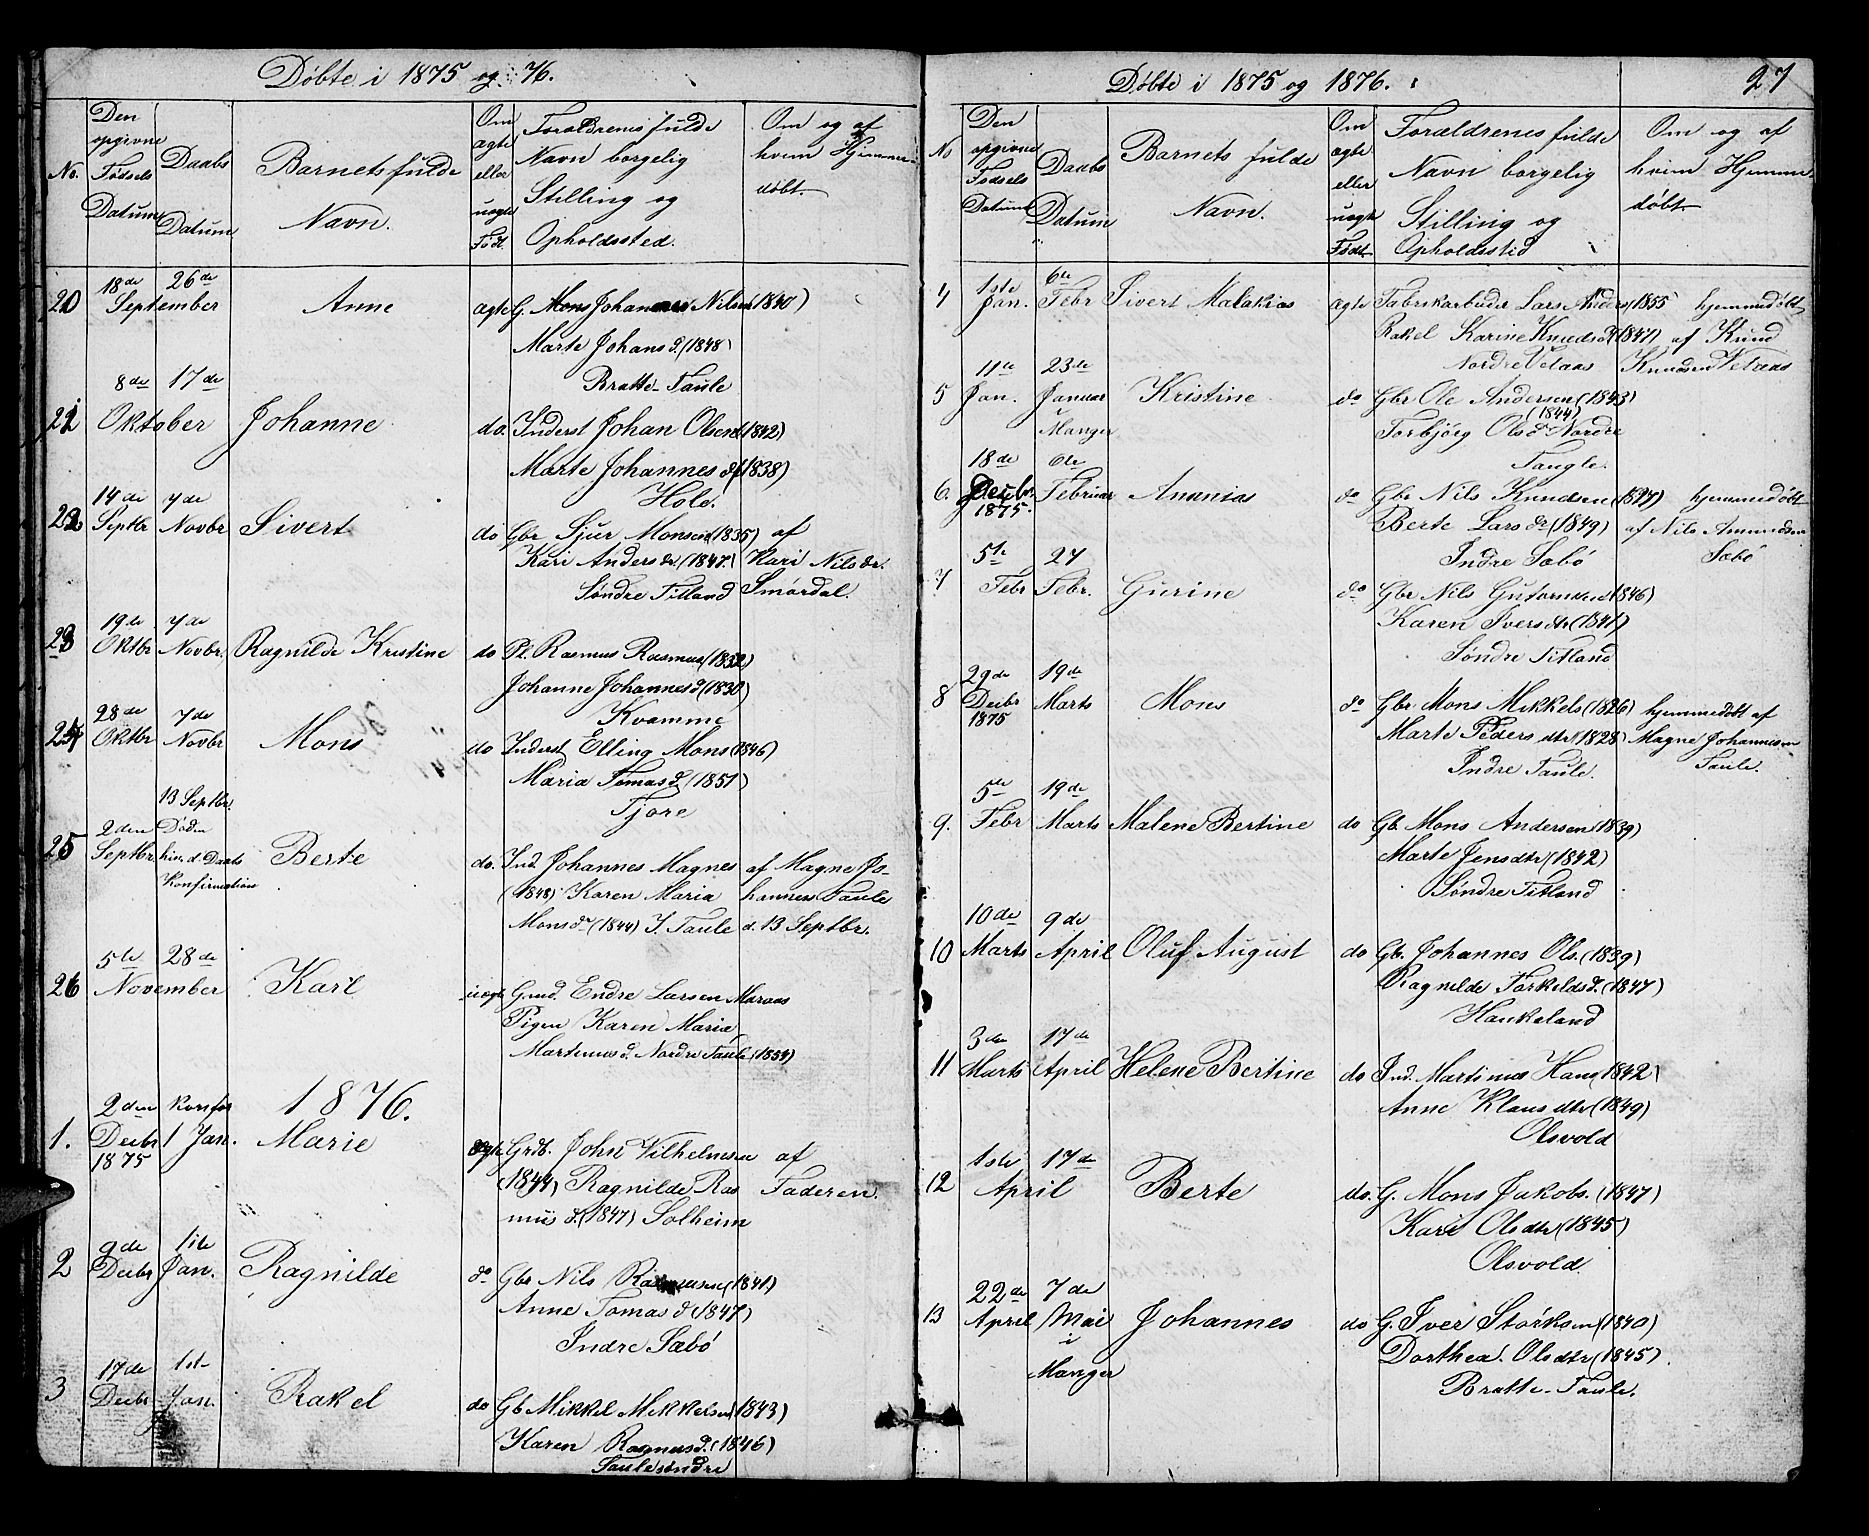 Døbte i 1875 og 76.
No.
Den
opgivne
Fødsels
Datum
Daabs
Datum
Barnets fulde
Navn.
Om
ægte
eller
uægte
Født.
Forældrenes fulde
Navn borgelig
Stilling og
Opholdssted.
Om og af
hvem Hjemme-
døbt.
20 18de 26de
September Anne ægte G. Mons Johannes Nilsen (1840)
Marte Johans d. (1848)
Bratte-Taule
8de 17de
21 Oktober Johanne do. Inderst Johan Olsen (1842)
Marte Johannes d. (1838)
Hole.
14de 7de
22 Septbr Novbr Sivert do Gbr Sjur Monsen (1835) af
Kari Anders dr. (1847) Kari Nilsdr.
Søndre Titland Smørdal.
19de 7de
23 Oktbr Novbr. Ragnilde Kristine do Pl. Rasmus Rasmus (1832)
Johanne Johannes d. (1830)
Kvamme
28de 7de
24 Oktbr Novbr Mons do Inderst Elling Mons (1846)
Maria Tomas d. (1851)
Tjore
13 Septbr.
2den Døden
25 Septbr. hiv. d. Daabs Berte do. Ind. Johannes Magnes af Magne Jo-
Konfirmation (1848) Karen Maria hannes Taule
Monsdr (1844) I. Taule d. 13 Septbr.
5te 28de
26 November Karl uægte Gmd. Endre Larsen Maraas
Pigen Karen Maria
Martinus d. Nordre Taule (1854)
1876.
2den Konfos
1. Decbr 1 Jan. Marie ægte Grdb. John Vilhelmsen af
1875 (1844) Ragnilde Ras Faderen.
mus d. (1847) Solheim
9de 1ste
2 Decbr Jan. Ragnilde do Gbr Nils Rasmussen (1841)
Anne Tomas d (1847)
Indre Sæbø
17de 1st
3 Decbr Jan. Rakel do Gb Mikkel Mikkelsen (1843)
Karen Rasmusd. (1846)
Taule søndre
Døbte i 1875 og 1876.
27
No
Den
opgivne
Fødsels
Datum
Daabs
Datum
Barnets fulde
Navn.
Om
ægte
eller
uægte
Født
Forældrenes fulde
Navn borgelig
Stilling og
Opholdssted
Om og af
hvem Hjemme-
døbt.
1ste 6te
4 Jan. Febr Sivert Malakias ægte Fabrikarbeider Lars Anders (1855 hjemmedøbt
Rakel Karine Knudsd (1847) af Knud
Nordre Vetaas Knudsen Vetaas
11te 23de
5 Jan. Januar Kristine do Gbr Ole Andersen (1843)
i (1844)
Manger Torbjørg Olsdr Nordre
Tangle.
18de 6te
6. Decbr. Februar Ananias do Gbr Nils Knudsen (1827) hjemmedøbt
1875. Berte Lars dr (1849) af Nils Amundsen
Indre Sæbø Sæbø
5te 27
7 Febr Febr. Gurine do Gbr Nils Gutormsen (1846)
Karen Ivers dtr (1841)
Søndre Titland
29de 19de
8 Decbr Marts Mons do Gbr Mons Mikkels (1826) hjemmedøbt af
1875 Marte Peders dtr (1828) Magne Johannesen
Indre Taule. Taule.
5te 19de
9. Febr Marts Malene Bertine do Gb. Mons Andersen (1839)
Marte Jensdtr (1842)
Søndre Titland
10de 9de
10 Marts April Oluf August do Gb. Johannes Ols. (1839)
Ragnilde Torkeldsd. (1847)
Haukeland
3de 17de
11 Marts April Helene Bertine do Ind. Martinus Hans (1842)
Anne Klaus dtr (1849)
Olsvold
1ste 17de
12 April Berte do. G. Mons Jakobs. (1847)
Kari Olsdtr (1845)
Olsvold
22de 7de
13 April Mai Johannes do G. Iver Størksen (1840)
i Dorthea Olsdtr (1845).
Manger Bratte-Taule.